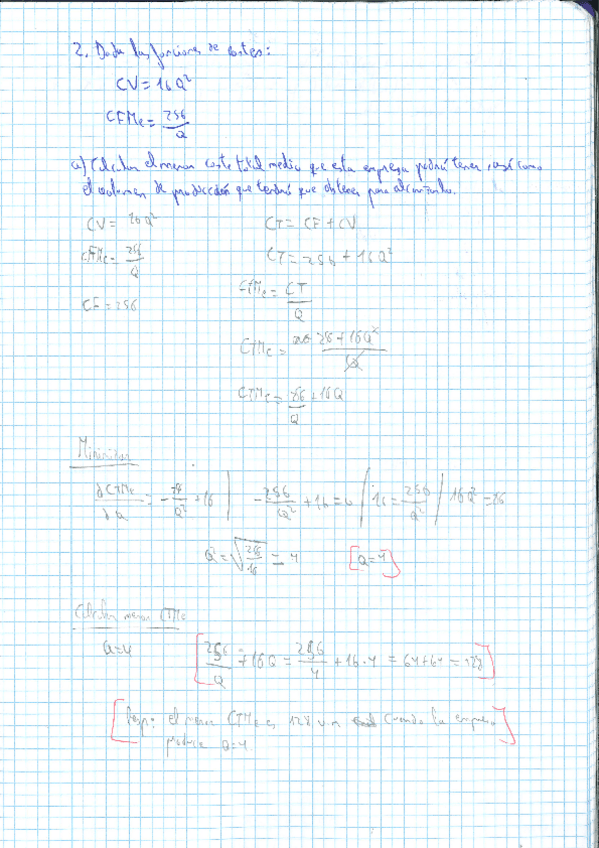 2. Dada las funciones de costes:
CV = 16Q²
CFMe = 256/Q
a) Calcular el menor coste total medio que esta empresa podrá tener, así como
el volumen de producción que tendrá que obtener para alcanzarlo.
CV = 16Q² CT = CF + CV
CFMe = 256/Q CT = 256 + 16Q²
CF = 256 CTMe = CT/Q
CTMe = + 16Q²/Q
CTMe = /Q + 16Q
Minimizar
∂CTMe/∂Q = - /Q² + 16 | -256/Q² + 16 = 0 | 16 = 256/Q² | 16Q² =
Q = √256/16 = 4 [Q=4]
Calcular menor CTMe
Q=4 [256/Q + 16Q = 256/4 + 16·4 = 64+64 = 128]
[Resp: el menor CTMe es 128 u.m cuando la empresa
produce Q=4]